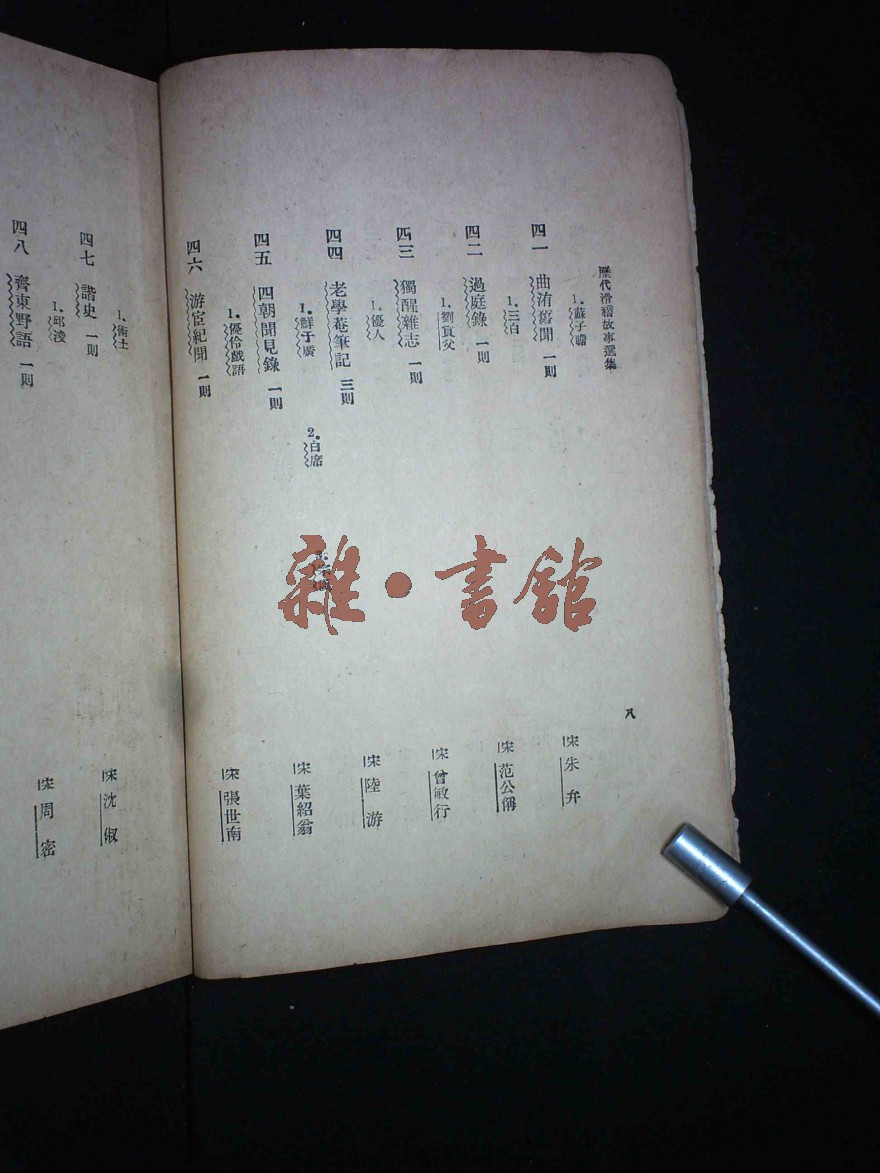 歷代滑稽故事選集
八
四一 曲洧舊聞 一則 宋朱弁
1.蘇子瞻
四二 過庭錄 一則 宋范公偁
1.三白
四三 獨醒雜志 一則 宋曾敏行
1.劉貢父
四四 老學菴筆記 三則 宋陸游
1.優人
四五 四朝聞見錄 一則 宋葉紹翁
1.鮮于廣 2.白席
四六 游宦紀聞 一則 宋張世南
1.優伶戲語
四七 諧史 一則 宋沈俶
1.術士
四八 齊東野語 一則 宋周密
1.邱浚
雜·書館